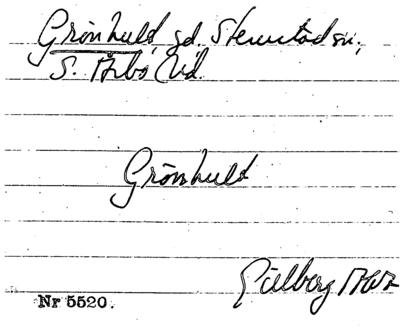 Grönhult, gd, Stenestad sn,
S. Åsbo hd
Grönhult
Nr 5520.